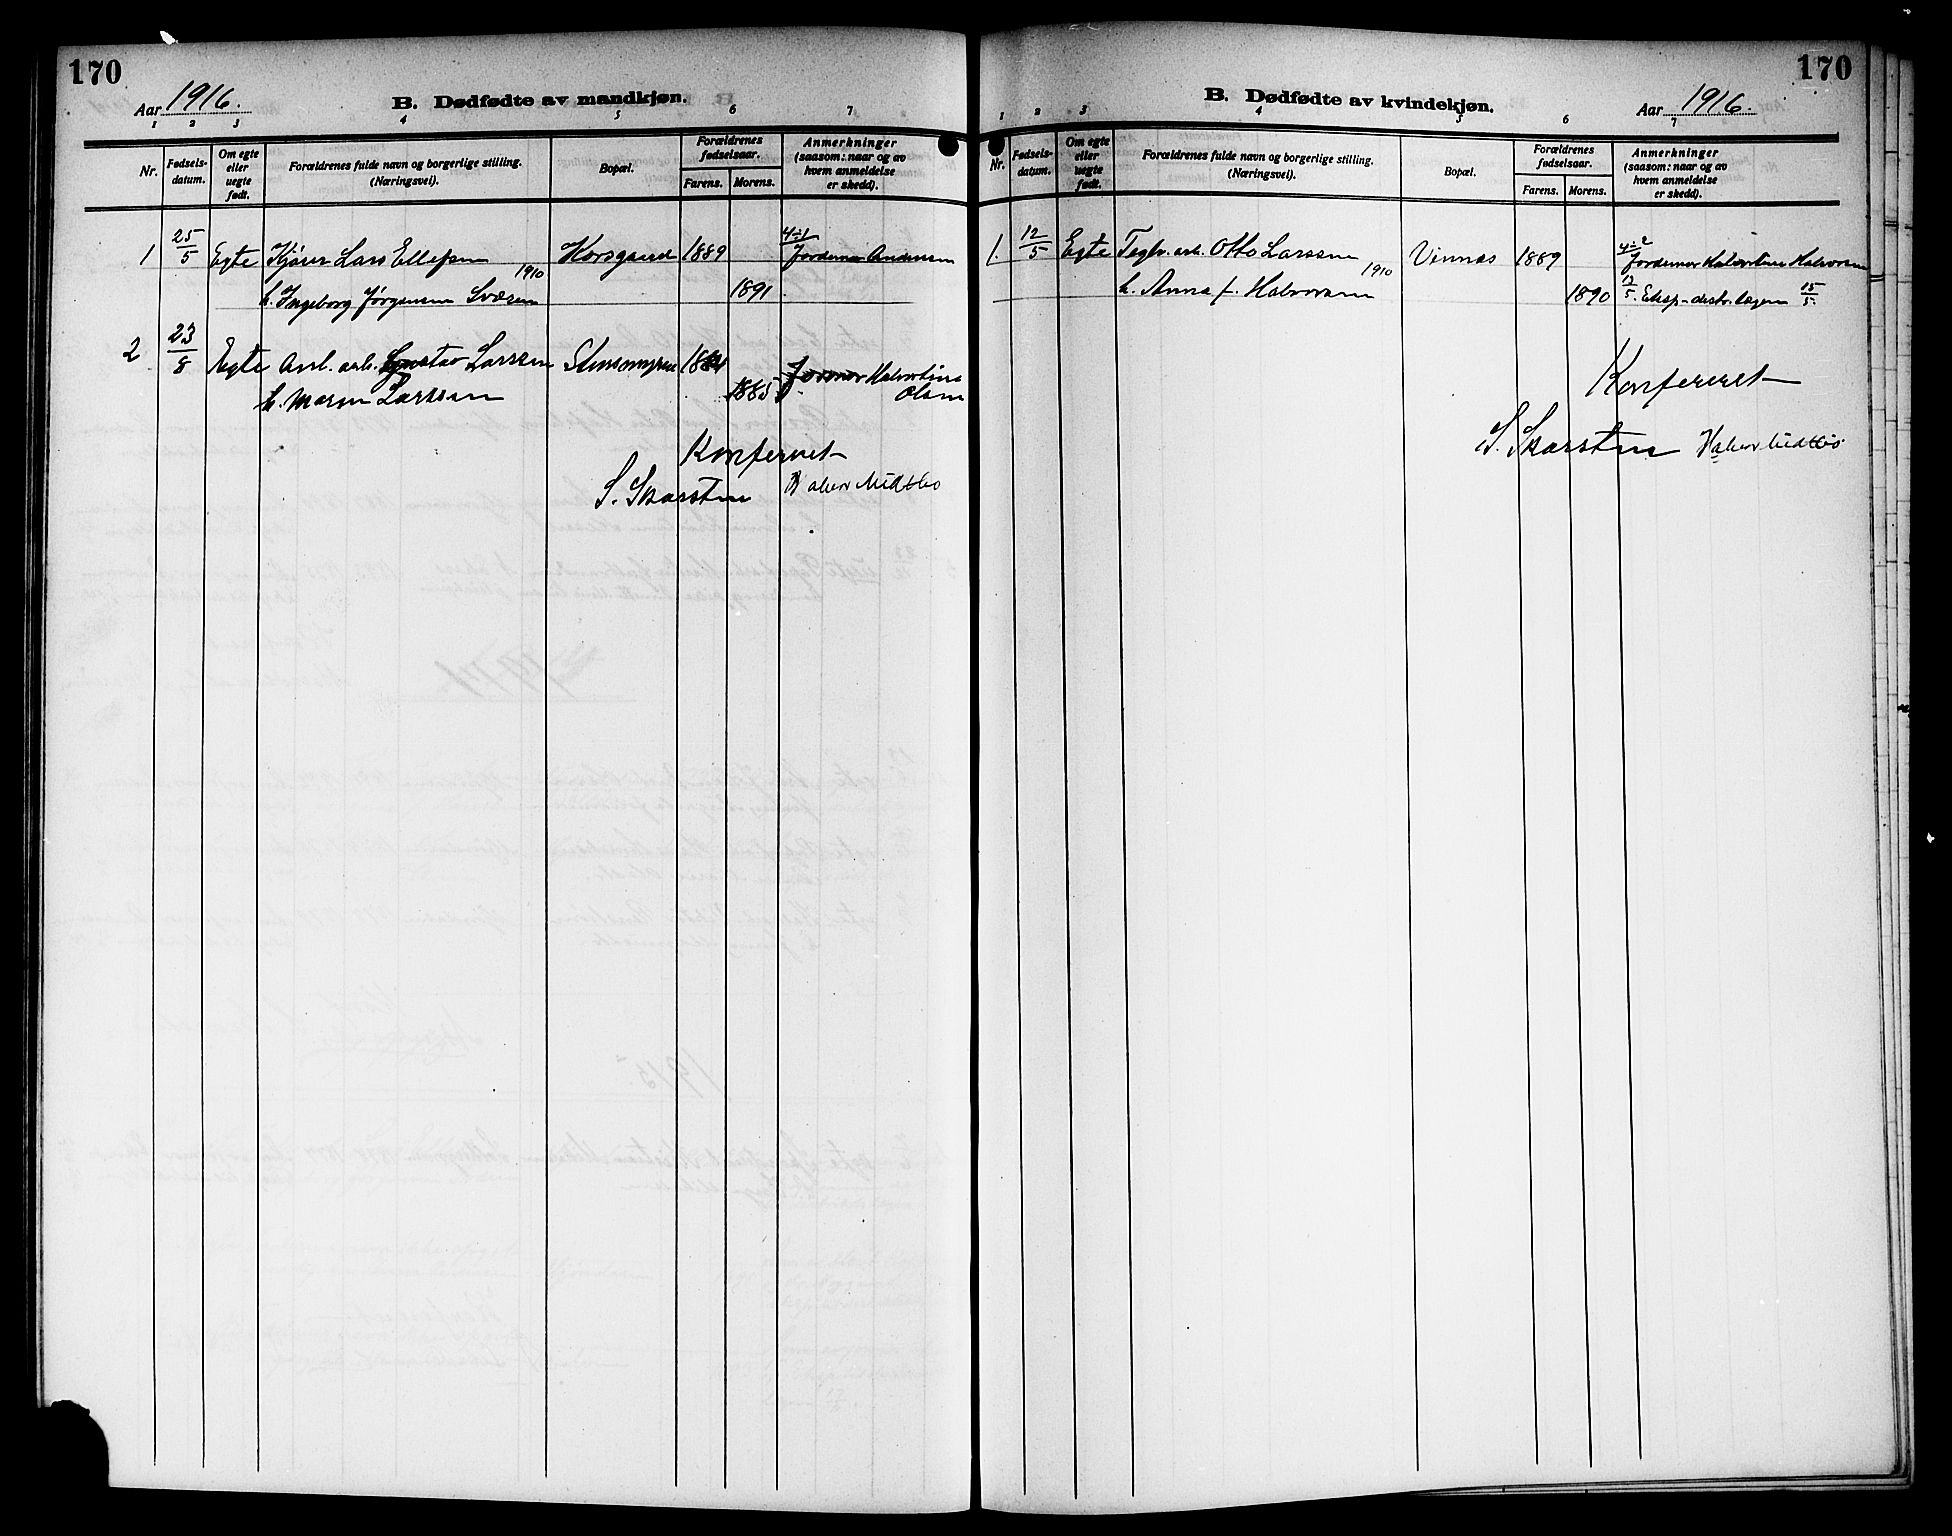 170
Aar 1916.
B. Dødfødte av mandkjøn.
1 2 3 4 5 6 7
Nr.
Fødsels-
datum.
Om egte
eller
uegte
født.
Forældrenes fulde navn og borgerlige stilling.
(Næringsvei).
Bopæl.
Forældrenes
fødselsaar.
Farens. Morens.
Anmerkninger
(saasom: naar og av
hvem anmeldelse
er skedd).
1 25/5 Egte Kjører Lars Ellefsen Korsgaard 1889 4÷1 Jordemor Andersen
1910
h. Ingeborg Jørgensen 1891
2 23/8 Egte Anl. arb. Gustav Larssen 1884 Jormor Halvortine
h. Maren Larssen 1885 Olsen
Konfereret
S. Skarsten Halvor Midtbø
170
B. Dødfødte av kvindekjøn.
Aar 1916.
1 2 3 4 5 6 7
Nr.
Fødsels-
datum.
Om egte
eller
uegte
født.
Forældrenes fulde navn og borgerlige stilling.
(Næringsvei).
Bopæl.
Forældrenes
fødselsaar.
Farens. Morens.
Anmerkninger
(saasom: naar og av
hvem anmeldelse
er skedd).
1. 12/5 Egte Teglv. arb. Otto Larssen Vinnæs 1889 4÷2 Jordemor Halvortine Halvorsen
1910
h. Anna f. Halvorsen 1890 12/5. Eksp. distr. lægen 15/5.
Konfereret
S. Skarsten Halvor Midtbø